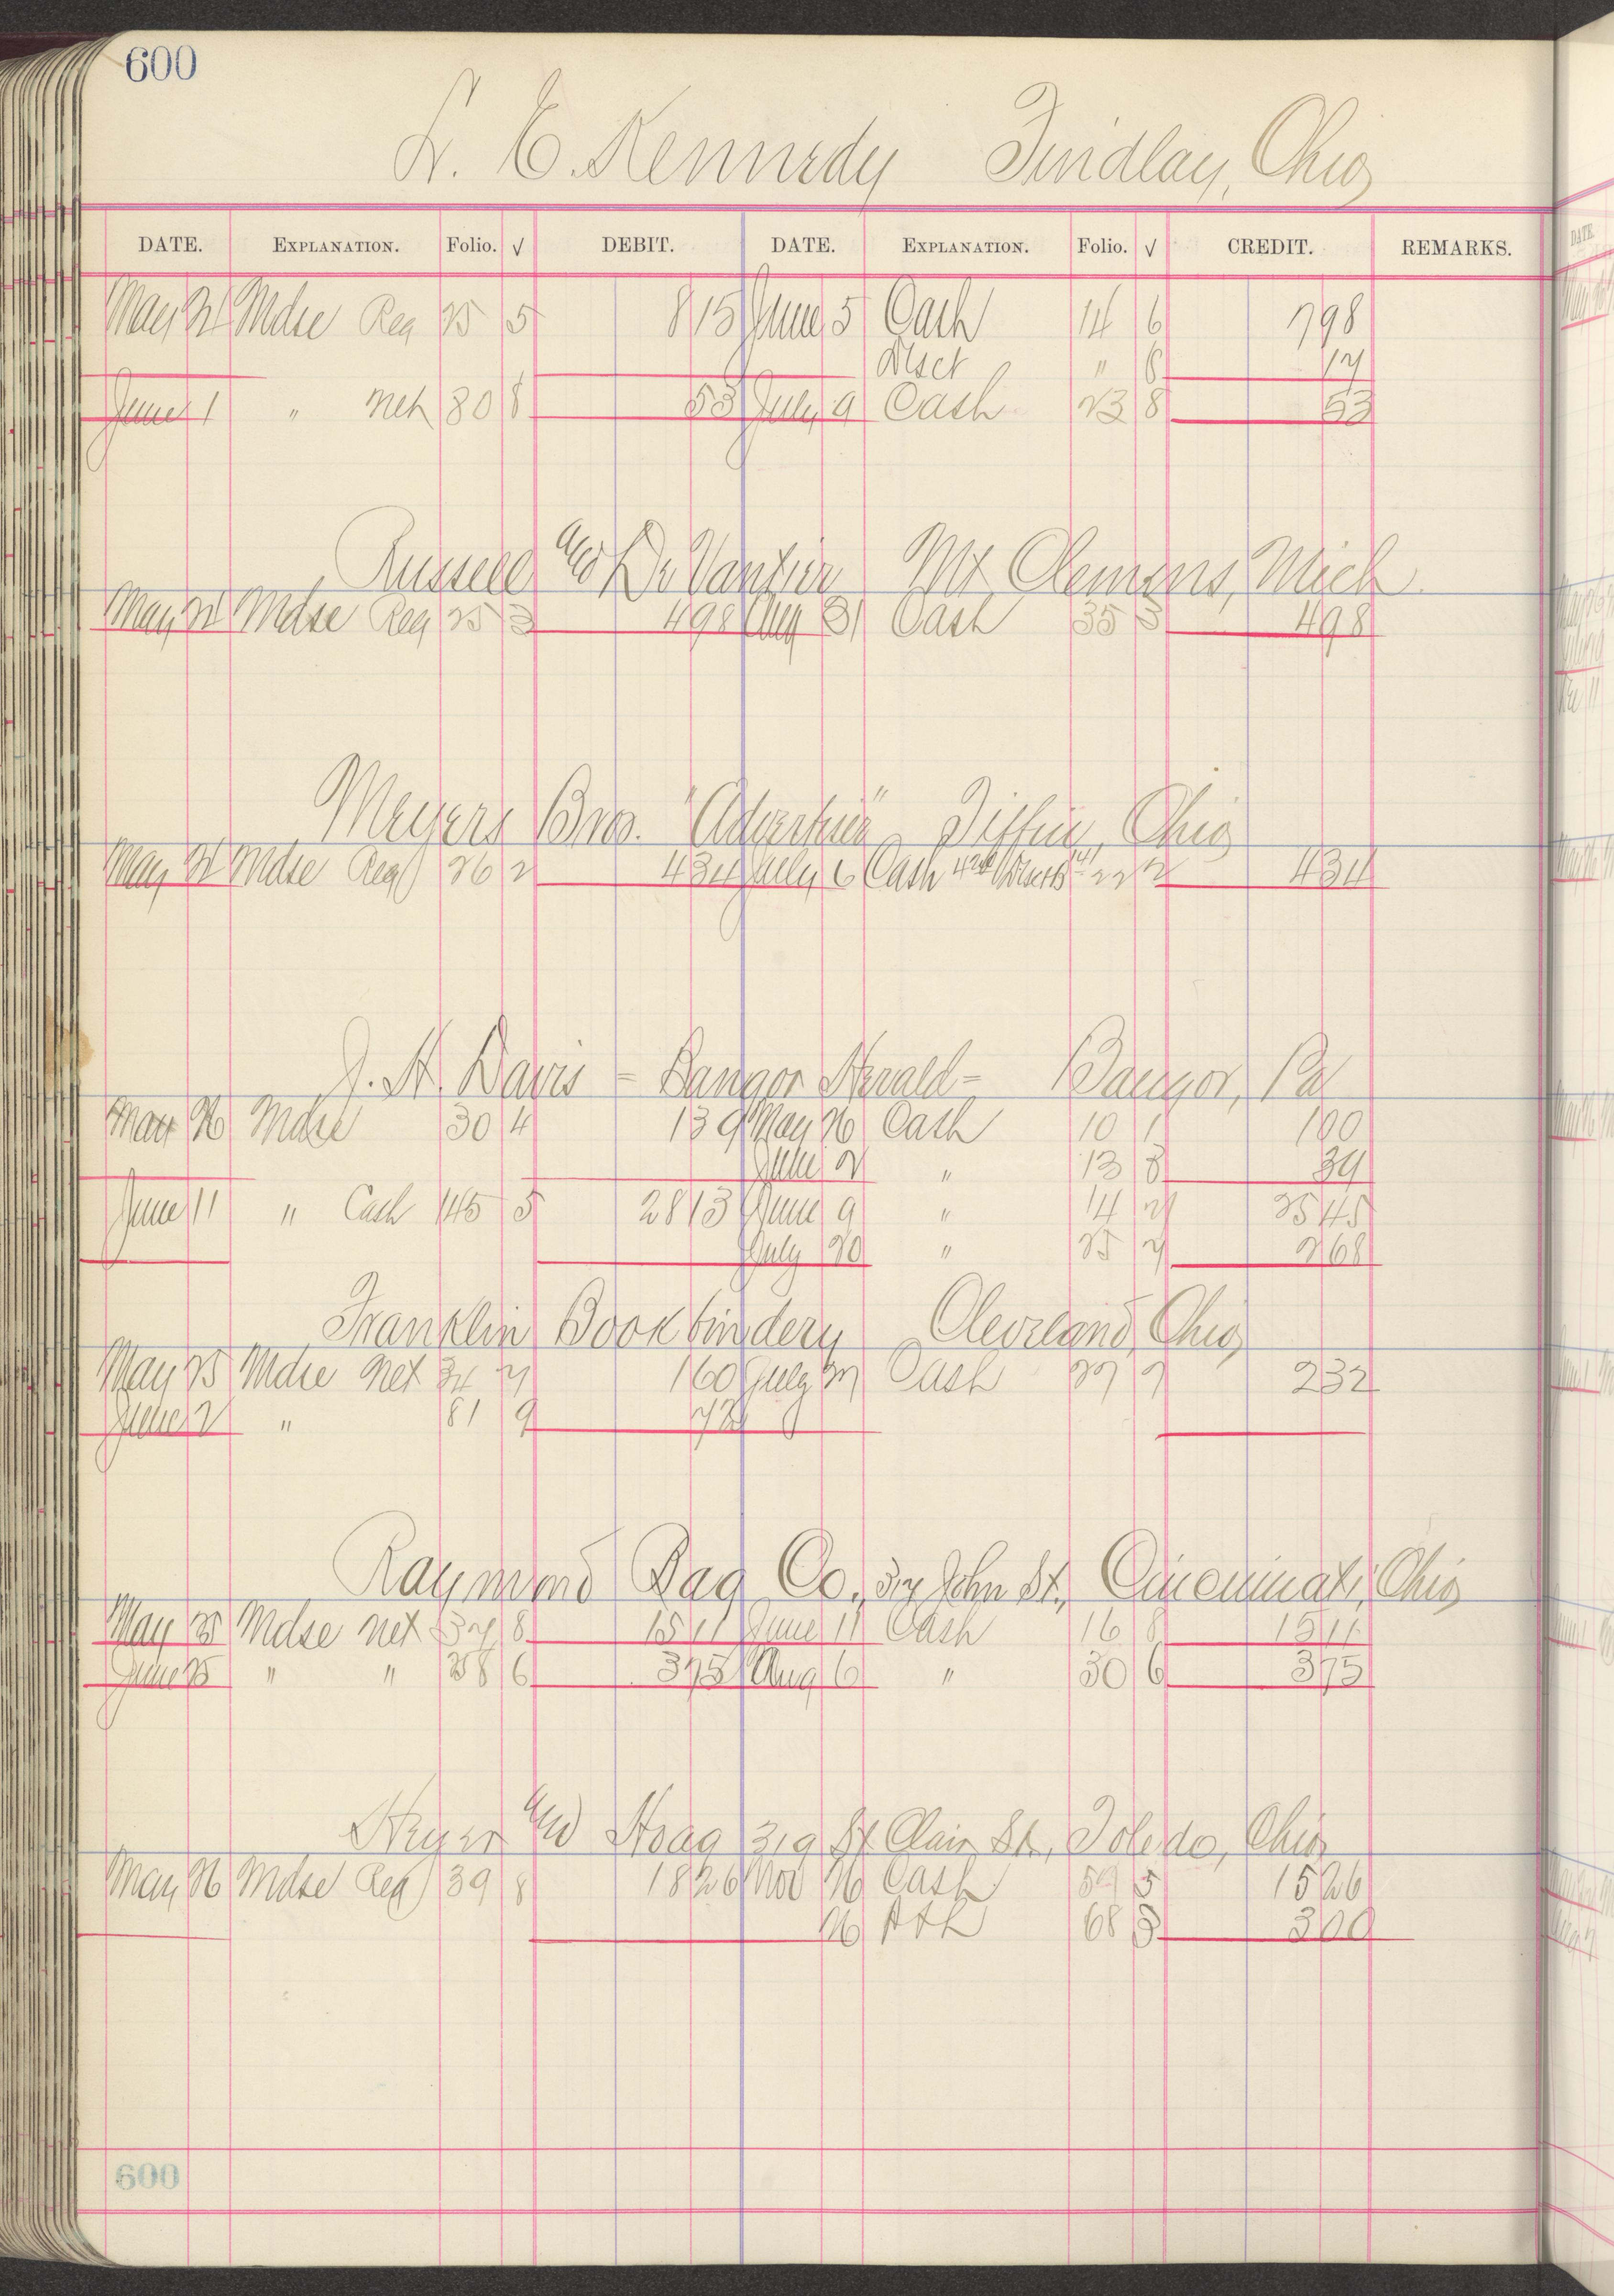 600
L. E. Kennedy Findlay, Ohio
DATE. EXPLANATION. Folio. √ DEBIT. DATE. EXPLANATION. Folio. √ CREDIT. REMARKS.
May 21 Mdse Reg 25 5 8 15 June 5 Cash 14 6 7 98
Disct " 6 17
June 1 " Net 30 8 53 July 9 Cash 23 8 53
Russell and De Vantier Mt Clemens, Mich
May 21 Mdse Reg 25 3 4 98 Aug 31 Cash 35 3 4 98
Meyers Bros. "Advertiser" Tiffin, Ohio
May 21 Mdse Reg 26 2 4 34 July 6 Cash 22 2 4 34
J. H. Davis - Bangor Herald - Bangor, Pa
May 26 Mdse 30 4 1 39 May 26 Cash 10 1 1 00
June 2 " 13 8 39
June 11 " Cash 145 5 28 13 June 9 " 14 2 25 45
July 20 " 25 2 2 68
Franklin Book bindery Cleveland, Ohio
May 25 Mdse Net 34 1 60 July 27 Cash 27 7 2 32
June 2 " 81 9 72
Raymond Bag Co., John St., Cincinnati, Ohio
May 25 Mdse Net 37 8 15 11 June 11 Cash 16 8 15 11
June 25 " " 38 6 3 75 Aug 6 " 30 6 3 75
and Hoag 319 St Clair St., Toledo, Ohio
May 26 Mdse Reg 39 8 18 26 Nov 16 Cash 59 5 15 26
68 3 3 00
600